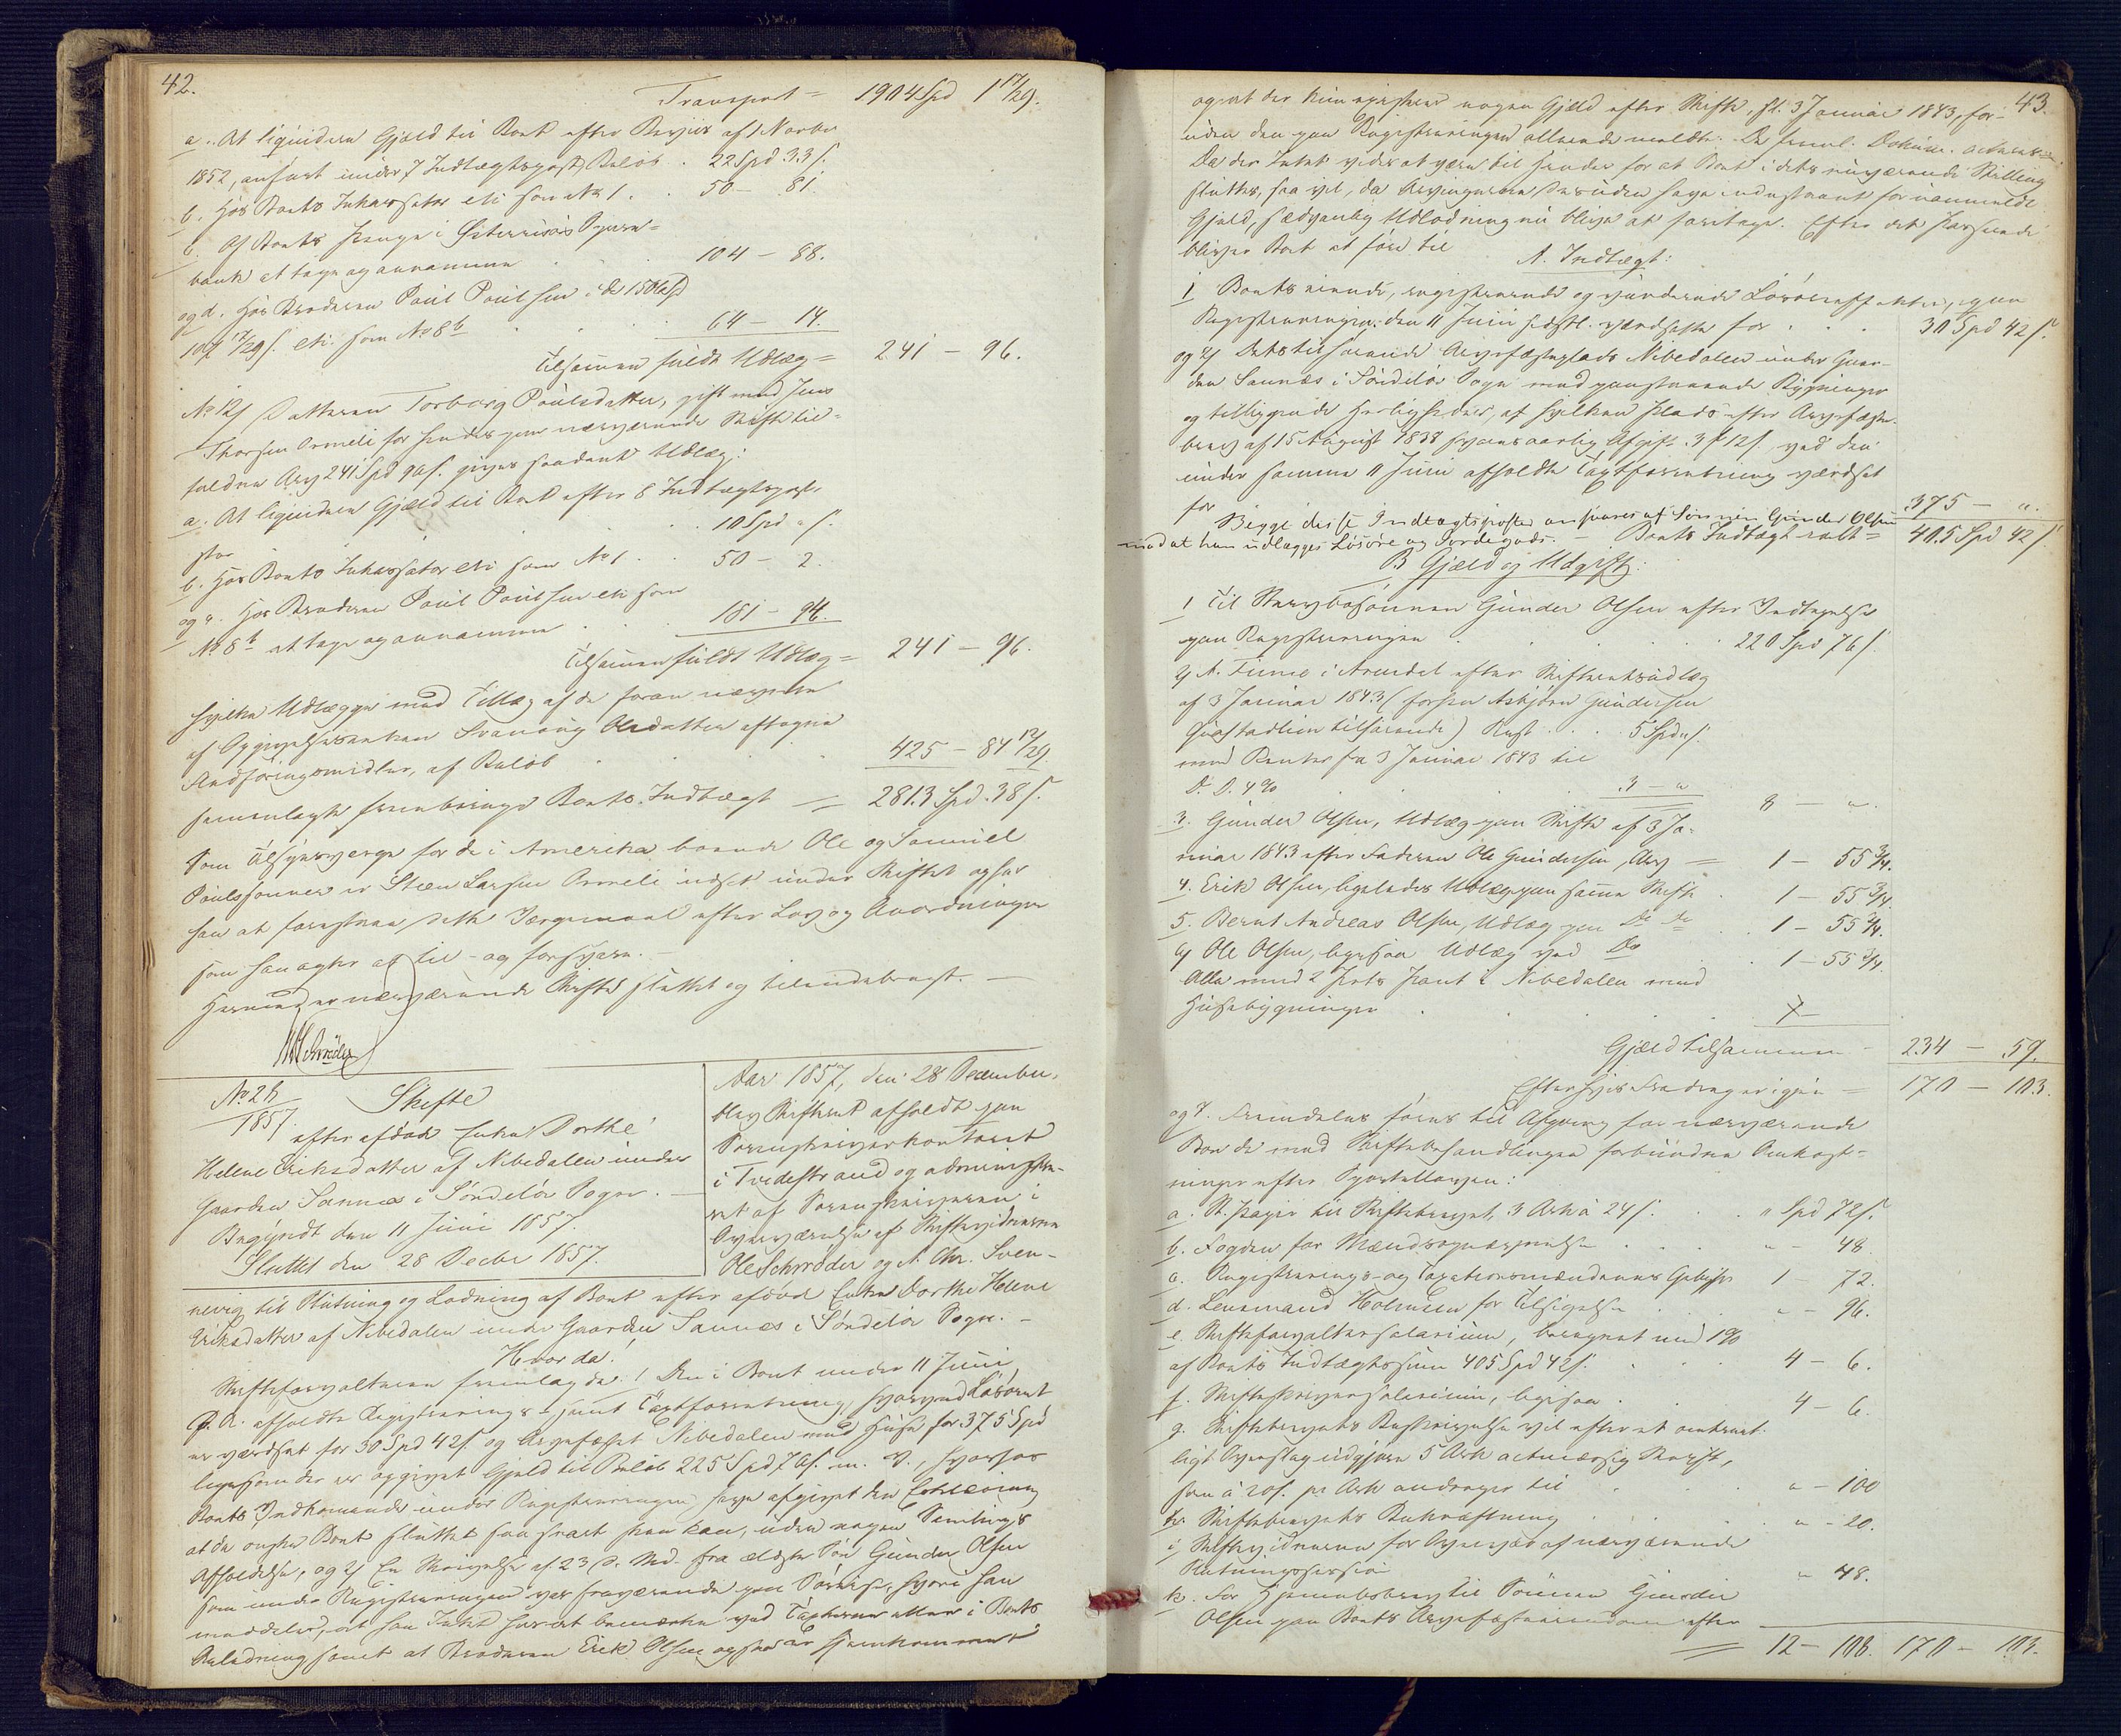 42.
Transport = 1904 Spd 1 17/29.
a. At liqvidere Gjæld til Boet efter Beviis af 1 Novbr
1852, anført under 7 Indtægtspost, Beløb . 22 Spd 33 s.
b. Hos Boets Inkassator etc. som No 1 . . 50 – 81.
c. Af Boets Penge i Østerriisøers Spare=
bank at tage og annamme . . 104 – 88.
og d. Hos Broderen Poul Poulsen i de
etc. som No 8b . . . 64 – 14.
Tilsammen fuldt Udlæg = 241 – 96.
No 12) Datteren Torborg Poulsdatter, gift med Jens
Thorsen Ormeli for hendes paa nærværende Skifte til=
faldne Arv 241 Spd 96 s. gives saadant Udlæg:
a. At liqvidere Gjæld til Boet efter 8 Indtægtspost
10 Spd " s.
b. Hos Boets Inkassator etc. som No 1 . . 50 – 2.
og c. Hos Broderen Poul Poulsen etc. som
No 8b at tage og annamme . . 181 – 94.
Tilsammen fuldt Udlæg = 241 – 96.
hvilke Udlægge med Tillæg af de foran nævnte
af Opgivelsesenken Olsdatter aftagne
Midler, af Beløb . . 425 – 84 12/29.
sammenlagte frembringe Boets Indtægt = 2813 Spd. 38 s.
Som Tilsynsverge for de i Amerika boende Ole og Samuel
Poulssønner er Steen Larsen Ormeli udset under Skiftet og har
han at forestaae dette Værgemaal efter Lov og Anordninger
som han agter at til- og forsvare. –
Hermed er nærværende Skifte sluttet og tilendebragt. –
Schrøder
No 26
1857. Skifte
efter afdøde Enke Dorthe
Helene Eriksdatter af Nibedalen under
Gaarden Sannes i Søndeløv Sogn. –
Begyndt den 11 Juni 1857.
Sluttet den 28 Decbr 1857.
Aar 1857, den 28 December,
blev Skifteret afholdt paa
Sorenskriverkontoret
i Tvedestrand og administre-
ret af Sorenskriveren i
Overværelse af Skiftevidnerne
Ole Schrøder og A. Chr. Sven-
nevig til Slutning og Lodning af Boet efter afdøde Enke Dorthe Helene
Eriksdatter af Nibedalen under Gaarden Sannes i Søndeløv Sogn. –
Hvorda:
Skifteforvalteren fremlagde: 1 Den i Boet under 11 Juni
d. A. afholdte Registrerings- samt Taxtforretning, hvorved Løsøret
er værdsat for 30 Spd 42 s. og Arvefæstet Nibedalen med Huse for 375 Spd
ligesom der er opgivet Gjæld til Beløb 225 Spd 76 s. m. V., hvorhos
Boets Vedkommende under Registreringen have afgivet den Erklæring
at de ønske Boet sluttet saa snart skee kan, uden nogen Samlings
Afholdelse, og 2) En Skrivelse af 23 d. Md. fra ældste Søn Gunder Olsen
som under Registreringen var fraværende paa Søreise, hvori han
meddeler, at han Intet havde at bemærke ved Taxterne eller i Boets
Anledning samt at Broderen Erik Olsen ogsaa er hjemkommet
43.
og at der kun existerer nogen Gjæld efter Skifte, sl. 3 Januar 1843, for-
uden den paa Registreringen allerede meldte. De freml. Dokum.
Da der Intet vides at være til Hinder for at Boet i dets nuværende Stilling
sluttes, saa vil, da Arvingerne desuden have indestaaet for meldte
Gjæld, sædvanlig Udlodning nu blive at foretage. Efter det Passerede
bliver Boet at føre til
A. Indtægt:
1 Boets eiende, registrerede og vurderede Løsøreeffekter, paa
Registreringen den 11 Juni sidstl. værdsatte for . . . 30 Spd 42 s.
og 2) Dets tilhørende Arvefæsteplads Nibedalen under Gaar-
den Sannes i Søndeløv Sogn med paastaaende Bygninger
og tilliggende Herligheder, af hvilken Plads efter Arvefæste-
brev af 15 August 1838 svares aarlig Afgift 3 # 12 s. ved den
under samme 11 Juni afholdte Taxtforretning værdsat
for . . . 375 – ".
Begge disse Indtægtsposter ansvares af Sønnen Gunder Olsen
mod at han udlægges Løsøre og Jordegods. – Boets Indtægt altsaa = 405 Spd 42 s.
B Gjæld og Udgift:
1 Til Stervbosønnen Gunder Olsen efter Indtagelse
paa Registreringen . . . 220 Spd 76 s.
2) A. Finne i Arendal efter Skifterets Udlæg
af 3 Januar 1843 (forhen Asbjørn Gundersen
tilhørende) Rest . . . 5 Spd " s.
med Renter fra 3 Januar 1843 til
D. D. 4 % . . . 3 – " 8 – ".
3. Gunder Olsen, Udlæg paa Skifte af 3 Ja-
nuar 1843 efter Faderen Ole Gundersen, Arv = 1 – 55 3/4.
4. Erik Olsen, ligeledes Udlæg paa samme Skifte . 1 – 55 3/4.
5. Bernt Andreas Olsen, Udlæg paa Do Do . . 1 – 55 3/4.
6) Ole Olsen, ligesaa Udlæg ved Do . . 1 – 55 3/4.
Alle med 2 Prts Pant i Nibedalen med
Husebygninger . . . 7 –
Gjæld tilsammen – 234 – 59.
Efter hvis Fradrag er igjen = 170 – 103.
og 7. Fremdeles føres til Afgang for nærværende
Boe de med Skiftebehandlingen forbundne Omkost=
ninger efter Sportelloven:
a. St. Papir til Skiftebrevet, 3 Ark à 24 s. . . " Spd 72 s.
b. Fogden for Mændsopnævnelse . . . " – 48.
c. Registrerings- og Taxationsmændenes Gebyhr 1 – 72.
d. Lensmand Holmsen for Tilsigelse . . . " – 96.
e. Skifteforvaltersalarium, beregnet med 1 %
af Boets Indtægtssum 405 Spd 42 s. . . 4 – 6.
f. Skifteskriversalarium, ligesaa . . 4 – 6.
g. Skiftebrevets Beskrivelse vil efter et omtrent-
ligt Overslag udgjøre 5 Ark actmæssig Skrift,
som à 20 s. pr Ark andrager til . . " – 100
h. Skiftebrevets Bekræftning . . . " – 20.
i) Skiftevidnerne for Overvær af nærværende
Slutningssession . . " – 48.
k. For Hjemmelsbrev til Sønnen Gunder
Olsen paa Boets Arvefæsteeiendom efter
= 12 – 108. 170 – 103.